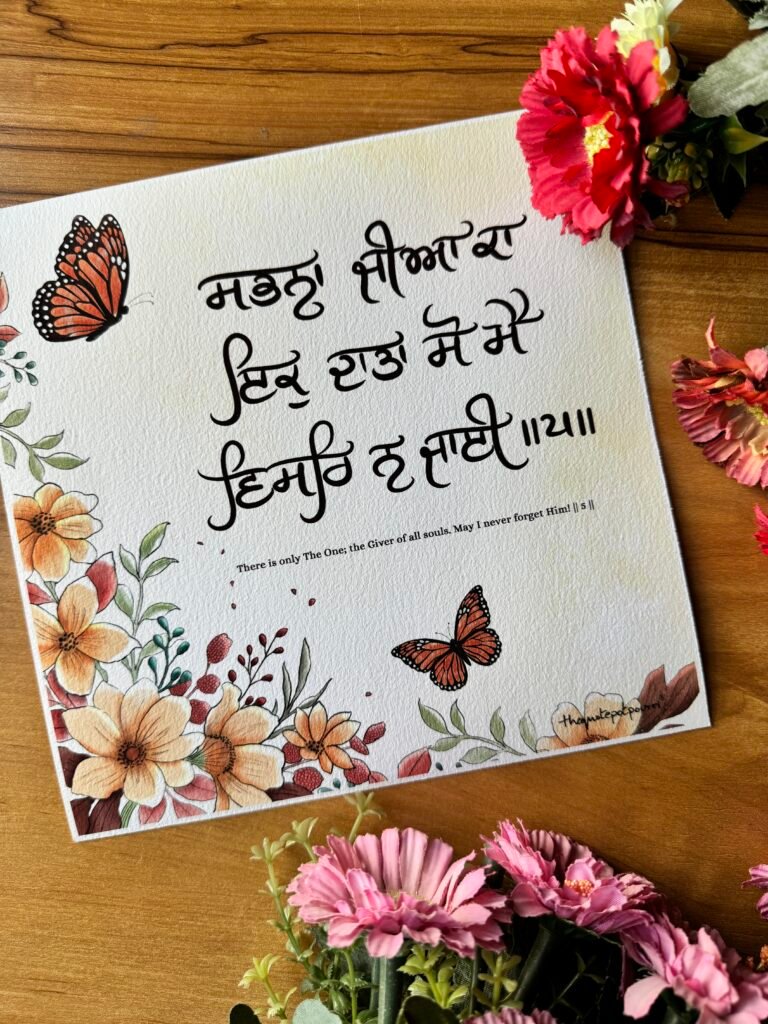 ਸਭਨਾ ਜੀਆ ਕਾ
ਇਕੁ ਦਾਤਾ ਸੋ ਮੈ
ਵਿਸਰਿ ਨ ਜਾਈ ॥੫॥
There is only The One; the Giver of all souls. May I never forget Him! || 5 ||
thequotepotpourri